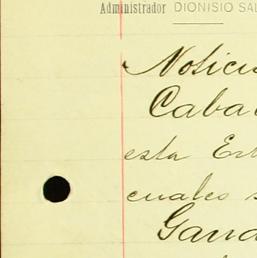 Administrador DIONISIO SAL
Noticia
Caba
esta Est
cuales s
Gana